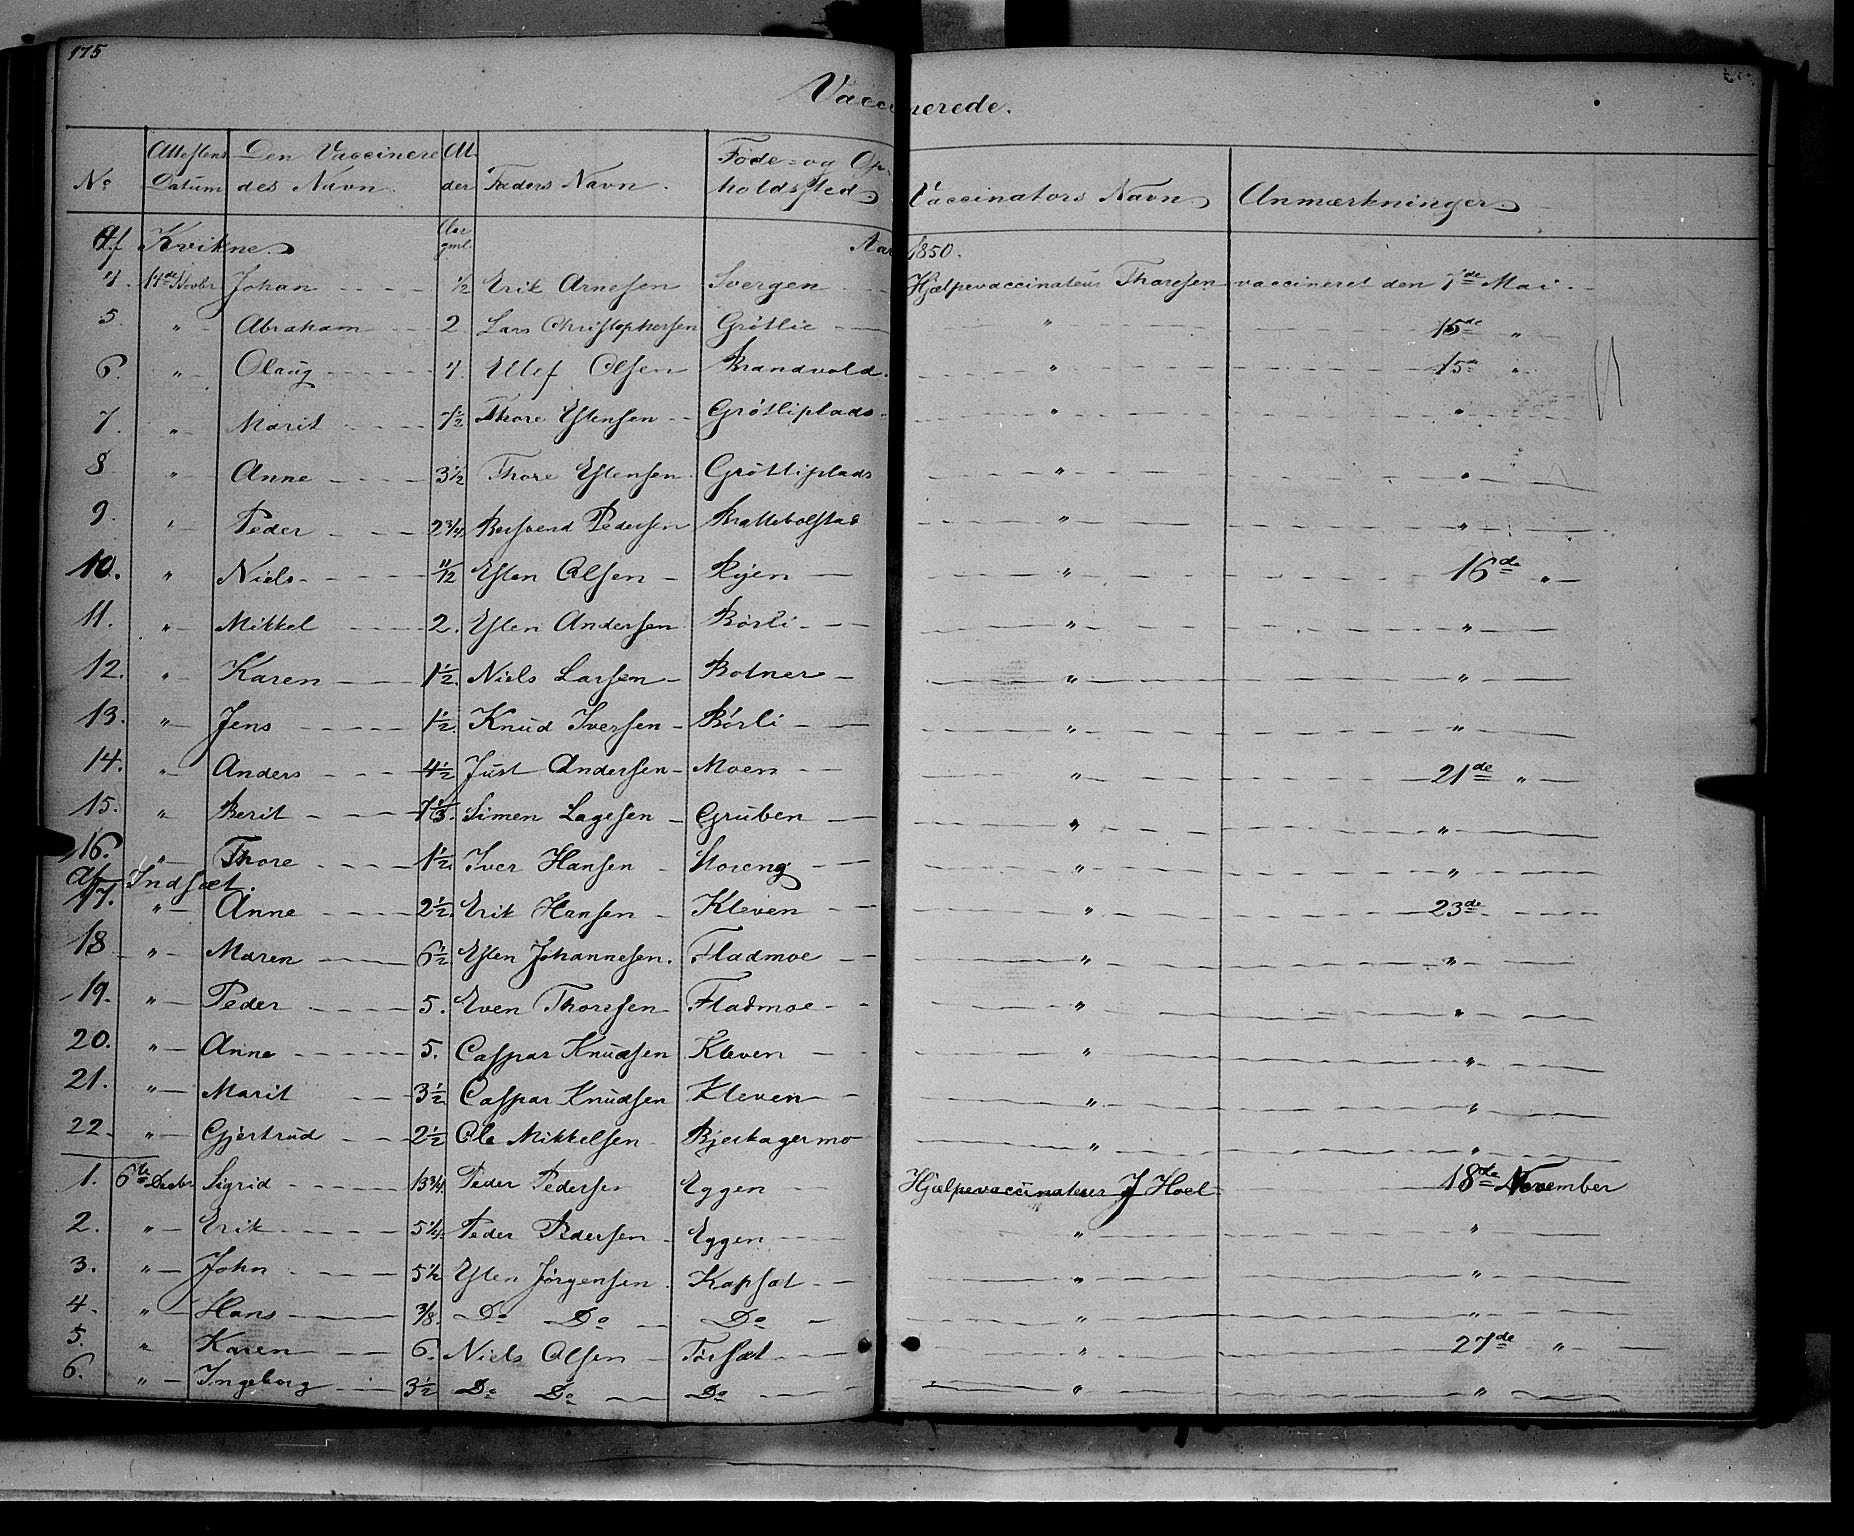 175
Vaccinerede.
No Attestens Datum Den Vaccineredes Navn. Alder Faders Navn. Føde- og Opholdssted. Vaccinators Navn Anmærkninger
Af Kvikne. Aar gml. Aar 1850.
4. 14de Novbr Johan ½ Erik Arnesen Svergen Hjælpevaccinateur Thoresen vaccineret den 7de Mai.
5. " Abraham 2. Lars Christophersen Grötlie " 15de "
6. " Olaug 4. Ellef Olsen Brandvold. " 15de "
7. " Marit 7½ Thore Estensen Grötliplads " "
8 " Anne 3½ Thore Estensen Grötliplads " "
9. " Peder 2¾ Bersvend Pedersen Brattebolstad " "
10. " Niels 11/12 Esten Olsen Ryen " 16de "
11. " Mikkel 2. Esten Andersen Börli " "
12. " Karen 1½. Niels Larsen Botner " "
13. " Jens 1½. Knud Iversen Börli " "
14. " Anders 4½ Just Andersen Moen " 21de "
15. " Berit 7⅓. Simen Lagesen Gruben " "
16. " Thore 1½. Iver Hansen Storeng " "
Af Indsæt.
17. " Anne 2½. Erik Hansen Kleven " 23de
18 " Maren 6½ Esten Johannesen. Fladmoe " "
19. " Peder 5. Even Thoresen Fladmoe " "
20. " Anne 5. Caspar Knudsen Kleven " "
21. " Marit 3½ Caspar Knudsen Kleven " "
22 " Gjertrud 2½ Ole Mikkelsen Bjerkagermo " "
1. 6te Decbr Sigrid 13¾. Peder Pedersen Eggen Hjælpevaccinateur J Hoel 18de November
2. " Erik 5¼. Peder Pedersen Eggen " "
3. " John 5½ Esten Jörgensen. Kapsæt " "
4. " Hans 3/8. Do Do Do " "
5. " Karen 6. Niels Olsen Törsæt " 27de "
6. " Ingeborg 3½ Do Do Do " "